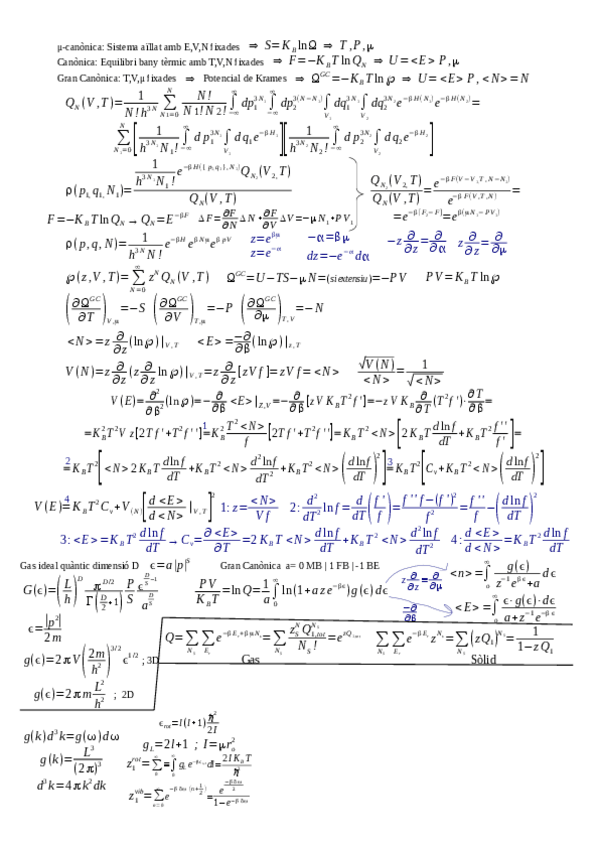 μ-canònica: Sistema aïllat amb E,V,N fixades ⇒ S=K_B lnΩ ⇒ T,P,μ
Canònica: Equilibri bany tèrmic amb T,V,N fixades ⇒ F=−K_B T ln Q_N ⇒ U=<E> P,μ
Gran Canònica: T,V,μ fixades ⇒ Potencial de Krames ⇒ Ω^{GC}=−K_B T ln℘ ⇒ U=<E> P,<N>=N
Q_N(V,T)=1/(N!h^{3N}) ∑_{N1=0}^{N} N!/(N_1!N_2!) ∫_{−∞} dp_1^{3N_1} ∫_{−∞} dp_2^{3(N−N_1)} ∫_{V_1} dq_1^{3N_1} ∫_{V_2} dq_2^{3N_2} e^{−βH(N_1)} e^{−βH(N_2)}=
∑_{N_1=0}^{N} [1/(h^{3N_1}N_1!) ∫_{−∞} dp_1^{3N_1} ∫_{V_1} dq_1 e^{−βH_1}][1/(h^{3N_2}N_2!) ∫_{−∞} dp_2^{3N_2} ∫_{V_2} dq_2 e^{−βH_2}]
ρ(p_1,q_1,N_1)= (1/(h^{3N_1}N_1!) e^{−βH({p_1q_1},N_1)} Q_{N_2}(V_2,T))/Q_N(V,T) Q_{N_2}(V_2,T)/Q_N(V,T)=e^{−βF(V−V_1,T,N−N_1)}/e^{−βF(V,T,N)}=
F=−K_B T ln Q_N → Q_N=E^{−βF} ΔF=∂F/∂N ΔN+∂F/∂V ΔV=−μN_1+PV_1 =e^{−β(F_2−F)}=e^{β(μN_1−PV_1)}
ρ(p,q,N)=1/(h^{3N}N!) e^{−βH} e^{βNμ} e^{βPV} z=e^{βμ} z=e^{−α} −α=βμ dz=−e^{−α}dα −z ∂/∂z=∂/∂α z ∂/∂z=∂/∂μ
℘(z,V,T)=∑_{N=0}^{∞} z^N Q_N(V,T) Ω^{GC}=U−TS−μN=(si extensiu)=−PV PV=K_B T ln℘
(∂Ω^{GC}/∂T)_{V,μ}=−S (∂Ω^{GC}/∂V)_{T,μ}=−P (∂Ω^{GC}/∂μ)_{T,V}=−N
<N>=z ∂/∂z(ln℘)|_{V,T} <E>=−∂/∂β(ln℘)|_{z,T}
V(N)=z ∂/∂z(z ∂/∂z ln℘)|_{V,T}=z ∂/∂z[zVf]=zVf=<N> √V(N)/<N>=1/√<N>
V(E)=∂²/∂β²(ln℘)=−∂/∂β <E>|_{Z,V}=−∂/∂β[zVK_BT²f']=−zVK_B ∂/∂T(T²f')·∂T/∂β=
=K_B²T²Vz[2Tf'+T²f'']=¹K_B² T²<N>/f [2Tf'+T²f'']=K_BT²<N>[2K_BT dlnf/dT+K_BT² f''/f]=
=²K_BT²[<N>2K_BT dlnf/dT+K_BT²<N> d²lnf/dT²+K_BT²<N>(dlnf/dT)²]=³K_BT²[C_v+K_BT²<N>(dlnf/dT)²]
V(E)=⁴K_BT²C_v+V_{(N)}[d<E>/d<N>|_{V,T}]² 1: z=<N>/Vf 2: d²/dT² lnf=d/dT(f'/f)=(f''f−(f')²)/f²=f''/f−(dlnf/dT)²
3: <E>=K_BT² dlnf/dT → C_v=∂<E>/∂T=2K_BT<N> dlnf/dT+K_BT²<N> d²lnf/dT² 4: d<E>/d<N>=K_BT² dlnf/dT
Gas ideal quàntic dimensió D ϵ=a|p|^S Gran Canònica a= 0 MB | 1 FB | -1 BE
G(ϵ)=(L/h)^D π^{D/2}/Γ(D/2+1) P/S ϵ^{D/S−1}/a^{D/S} PV/(K_BT)=lnQ=1/a ∫_0^∞ ln(1+aze^{−βϵ})g(ϵ)dϵ z ∂/∂z=∂/∂μ <n>=∫_0^∞ g(ϵ)/(z^{−1}e^{βϵ}+a) dϵ
−∂/∂β <E>=∫_0^∞ ϵ·g(ϵ)·dϵ/(a+z^{−1}e^{−βϵ})
ϵ=|p²|/2m
Q=∑_{N_s}∑_{E_s} e^{−βE_s+βμN_s}=∑_{N_s} z_S^{N_s}Q_{1,tot}^{N_s}/N_S!=e^{zQ_{1,tot}} ∑_{N_s}∑_{E_s} e^{−βE_s}z^{N_s}=∑_{N_s}(zQ_1)^{N_s}=1/(1−zQ_1)
g(ϵ)=2πV(2m/h²)^{3/2} ϵ^{1/2} ; 3D Gas Sòlid
g(ϵ)=2πm L²/h² ; 2D
ϵ_{rot}=l(l+1) ħ²/2I
g(k)d³k=g(ω)dω g_L=2l+1 ; I=μr_o²
g(k)=L³/(2π)³ z_1^{rot}=∑_0^∞≡∫_0^∞ g_L e^{−βϵ_{rot}}dl=2IK_BT/ħ
d³k=4πk²dk z_1^{vib}=∑_{n=0}^∞ e^{−βħω(n+1/2)}=e^{−βħω/2}/(1−e^{−βħω})